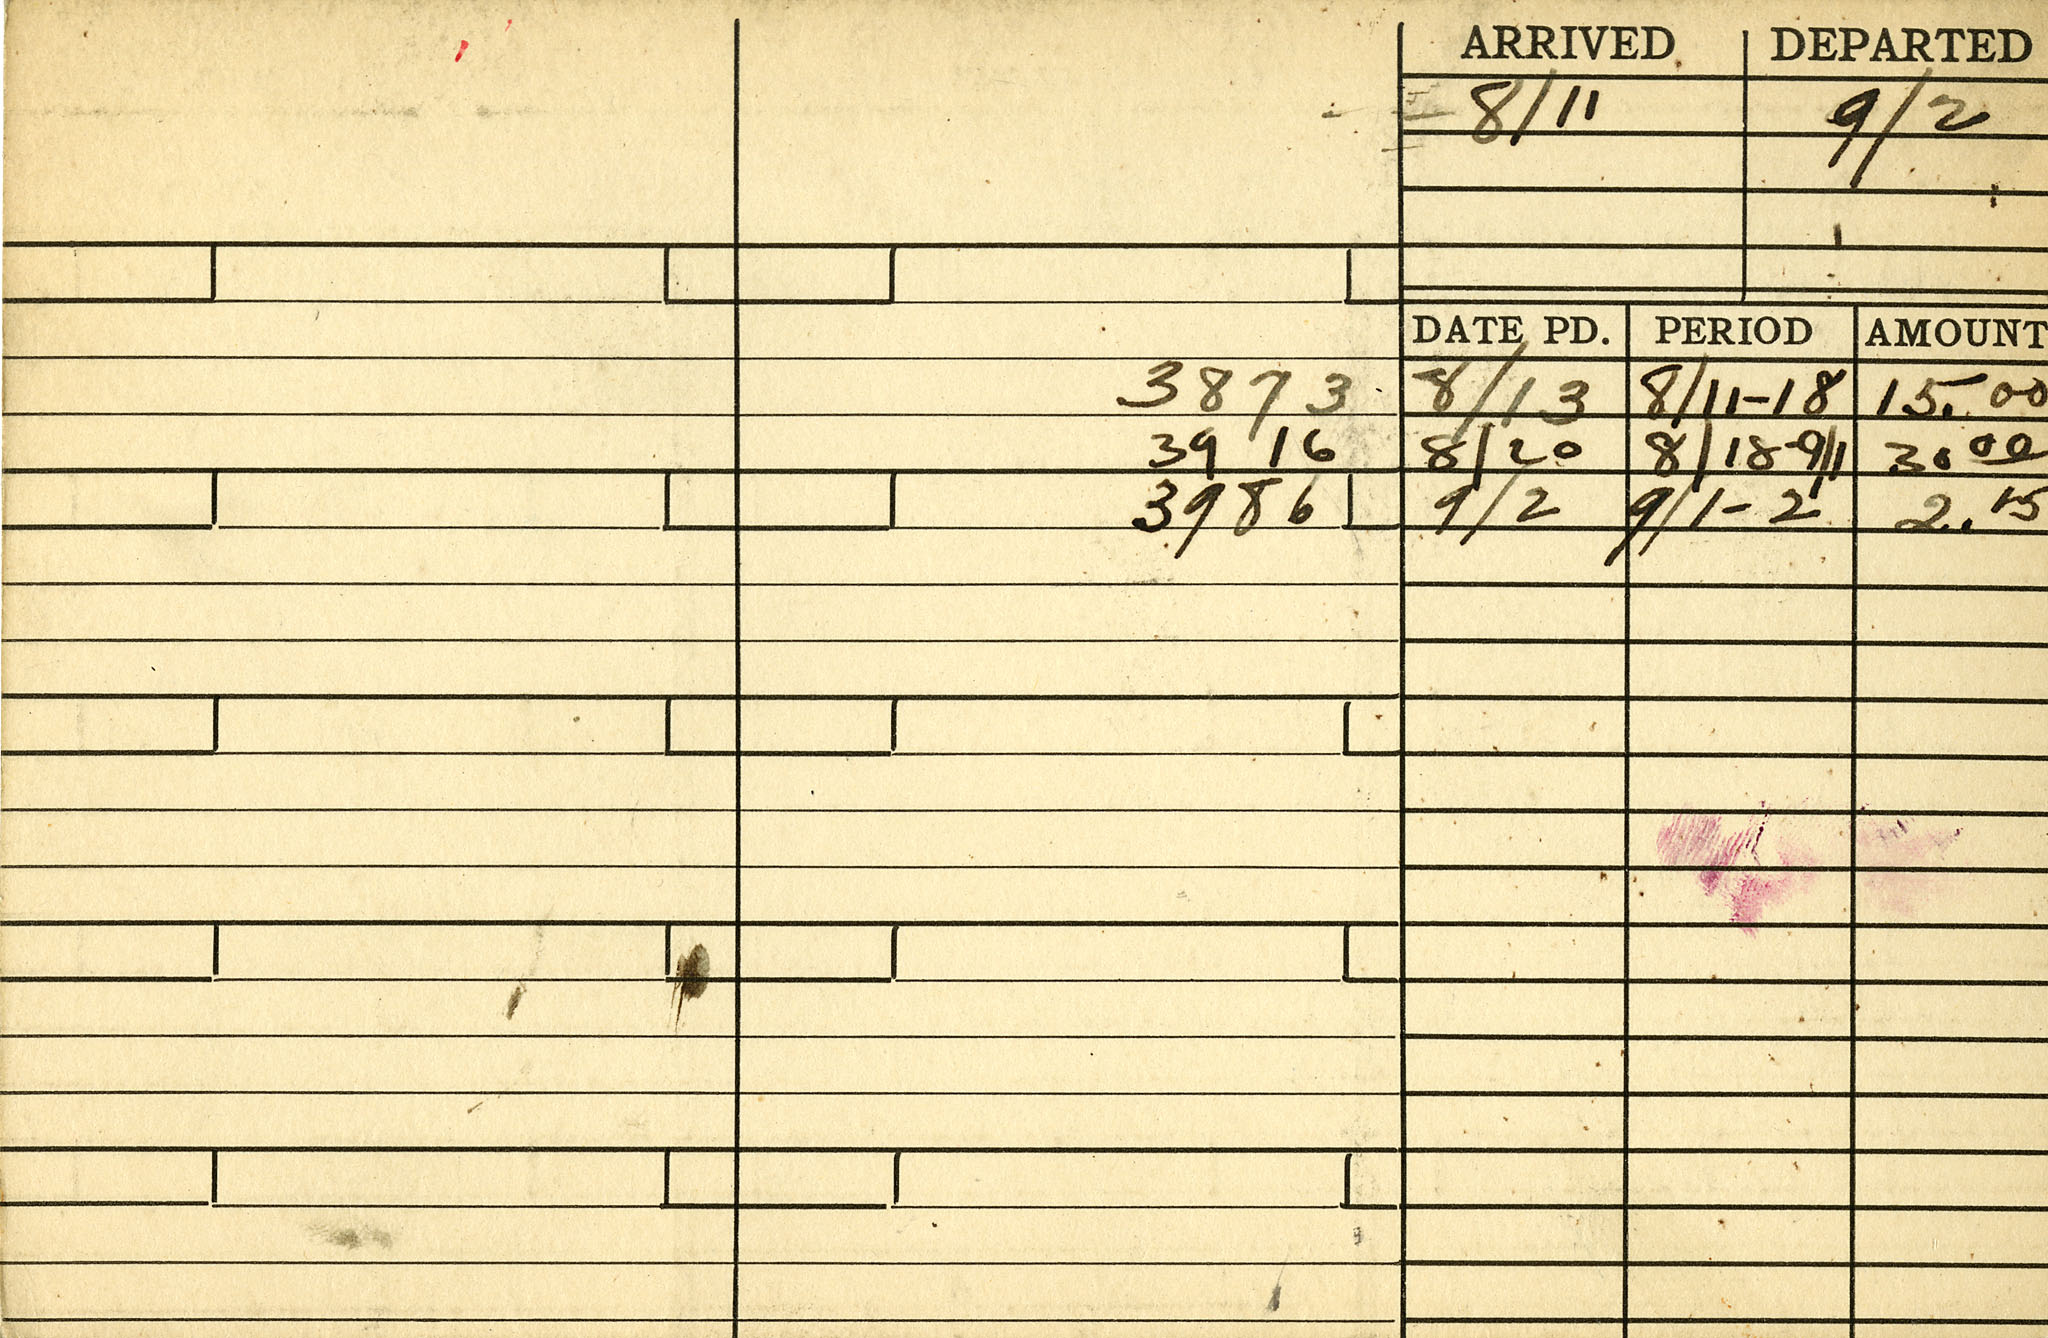 ARRIVED DEPARTED
8/11 9/2
DATE PD. PERIOD AMOUNT
3873 8/13 8/11-18 15.00
3916 8/20 8/18-9/1 30.00
3986 9/2 9/1-2 2.15